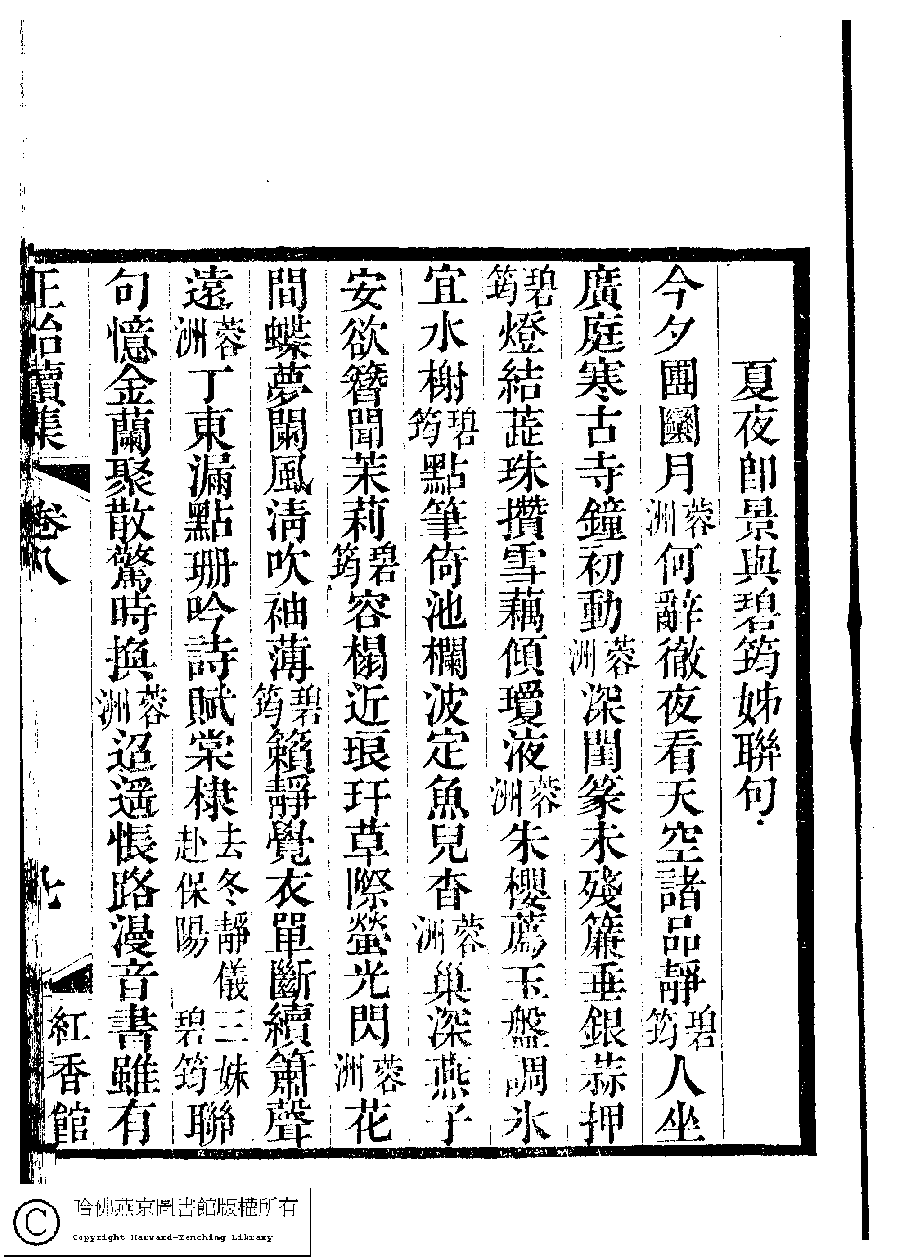 夏夜卽景與碧筠姊聯句
今夕團圞月蓉洲何辭徹夜看天空諸品靜碧筠人坐
廣庭寒古寺鐘初動蓉洲深閨篆未殘簾垂銀蒜押
碧筠燈結蕋珠攢雪藕傾瓊液蓉洲朱櫻薦玉盤調氷
宜水榭碧筠點筆倚池欄波定魚兒杳蓉洲巢深燕子
安欲簪聞茉莉碧筠容榻近琅玕草際螢光閃蓉洲花
間蝶夢闌風淸吹袖薄碧筠籟靜覺衣單斷續簫聲
遠蓉洲丁東漏點珊吟詩賦棠棣去冬靜儀三妹赴保陽碧筠聯
句憶金蘭聚散驚時換蓉洲迢遥悵路漫音書雖有
正始續集 卷八 七 紅香館
哈佛燕京圖書館版權所有
Copyright Harvard-Yenching Library